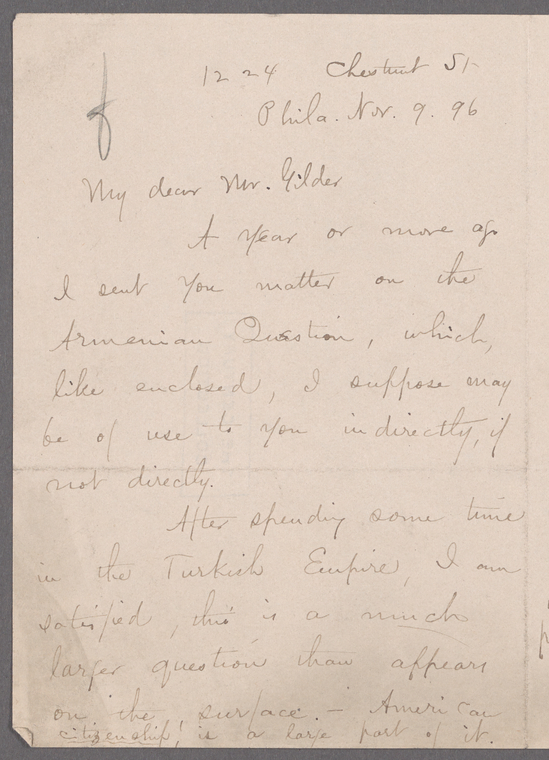 1224 Chestnut St
Phila. Nov. 9. 96
My dear Mr. Gilder
A year or more ago
I sent you matter on the
Armenian Question, which,
like enclosed, I suppose may
be of use to you indirectly, if
not directly.
After spending some time
in the Turkish Empire, I am
satisfied, this is a much
larger question than appears
on the surface. – American
citizenship, is a large part of it.